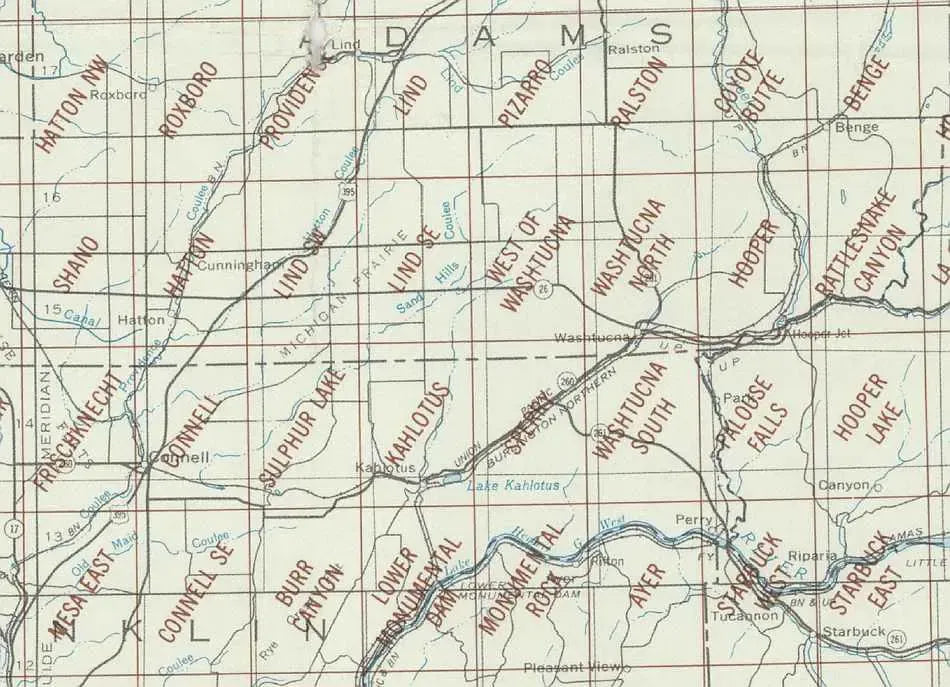 ADAMS
Lind
arden
17
Ralston
HATTON NW
Roxboro
ROXBORO
LIND
PIZARRO
Coulee
RALSTON
COYOTE
BUTTE
BENGE
Benge
BN
Coulee
BN
Coulee
395
16
Coulee
SHANO
HATTON
Cunningham
LIND SW
MICHIGAN PRAIRIE
LIND SE
Sand Hills
WEST OF
WASHTUCNA
WASHTUCNA
NORTH
261
HOOPER
RATTLESNAKE
CANYON
26
15
Canal
Hatton
Providence
Washtucna
Hooper Jct
UP
UP
MERIDIAN
14
FRISCHKNECHT
CONNELL
SULPHUR LAKE
KAHLOTUS
260
UNION
BURLINGTON NORTHERN
WASHTUCNA
SOUTH
261
Park
PALOUSE
FALLS
HOOPER
LAKE
260
Connell
Kahlotus
Lake Kahlotus
Canyon
Coulee
395
17
13
BN
Old Maid
Coulee
Perry
MESA EAST
CONNELL SE
BURR
CANYON
LOWER
MONUMENTAL
DAM
Lake
West
LOWER
MONUMENTAL DAM
MONUMENTAL
Ayer
AYER
RIVER
STARBUCK
WEST
Riparia
STARBUCK
EAST
LITTLE
BN & UP
Tucannon
Starbuck
261
NKLIN
Rye
Coulee
12
GUIDE
Pleasant View